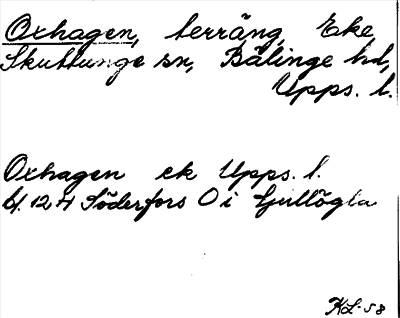 Oxhagen, terräng, Eke,
Skuttunge sn, Bälinge hd,
Upps. l.
Oxhagen ek Upps. l.
bl. 124 Söderfors O i Gullögla
KL-58